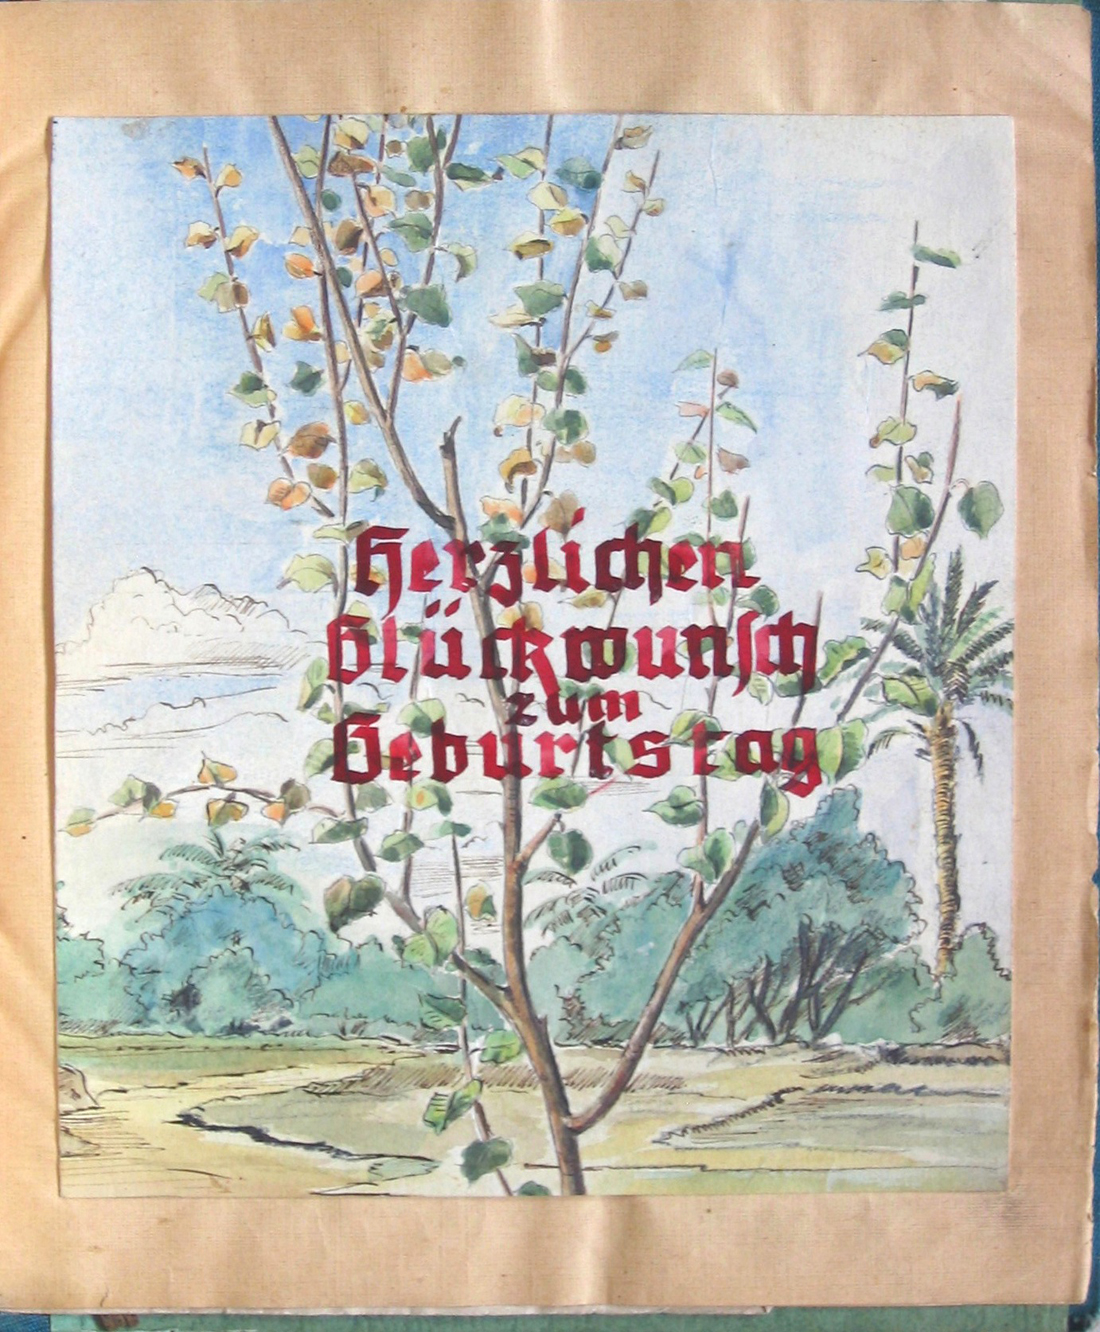 Herzlichen
Glückwunsch
zum
Geburtstag